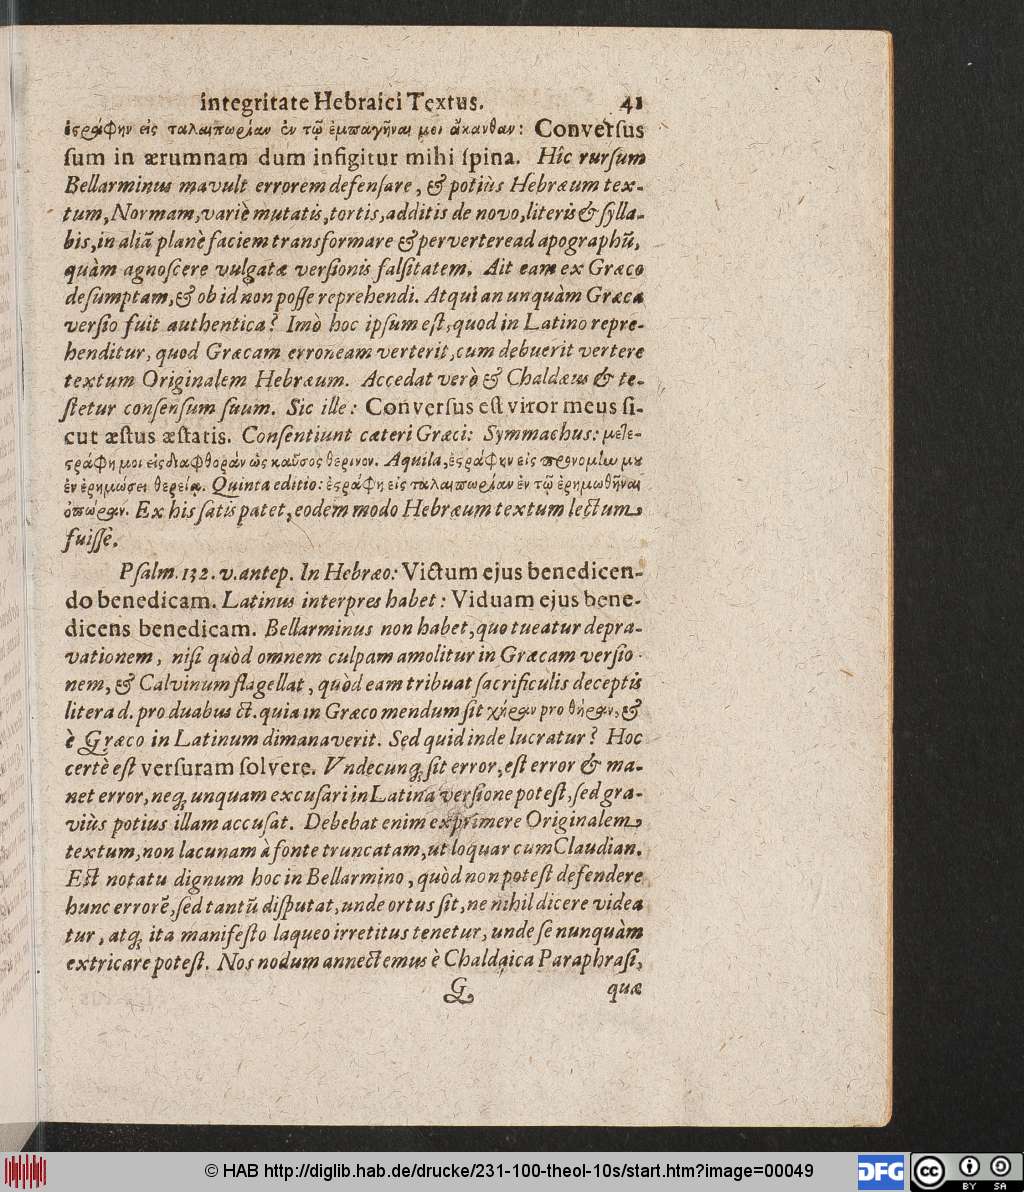 integritate Hebraici Textus. 41
ἐςράφην εἰς ταλαιπωρίαν ἐν τῷ ἐμπαγῆναι μοι ἄκανθαν: Converſus
ſum in ærumnam dum infigitur mihi ſpina. Hîc rurſum
Bellarminus mavult errorem defenſare, & potiùs Hebræum tex-
tum, Normam, variè mutatis, tortis, additis de novo, literis & ſylla-
bis, in aliã planè faciem transformare & pervertere ad apographũ,
quàm agnoſcere vulgatæ verſionis falſitatem. Ait eam ex Græco
deſumptam, & ob id non poſſe reprehendi. Atqui an unquàm Græca
verſio fuit authentica? Imò hoc ipſum eſt, quod in Latino repre-
henditur, quod Græcam erroneam verterit, cum debuerit vertere
textum Originalem Hebræum. Accedat verò & Chaldæus & te-
ſtetur conſenſum ſuum. Sic ille: Converſus eſt viror meus ſi-
cut æſtus æſtatis. Conſentiunt cæteri Græci: Symmachus: μετε-
ςράφη μοι εἰς διαφθορὰν ὡς καῦσος θερινον. Aquila, ἐςράφην εἰς προνομίω μȣ
ἐν ἐρημώσει θερείᾳ. Quinta editio: ἐςράφη εἰς ταλαιπωρίαν ἐν τῷ ἐρημωθῆναι
ὀπώραν. Ex his ſatis patet, eodem modo Hebræum textum lectum
fuiſſe.
Pſalm. 132. v. antep. In Hebræo: Victum ejus benedicen-
do benedicam. Latinus interpres habet: Viduam ejus bene-
dicens benedicam. Bellarminus non habet, quo tueatur depra-
vationem, niſi quòd omnem culpam amolitur in Græcam verſio-
nem, & Calvinum flagellat, quòd eam tribuat ſacrificulis deceptis
litera d. pro duabus ct. quia in Græco mendum ſit χήραν pro θήραν, &
è Græco in Latinum dimanaverit. Sed quid inde lucratur? Hoc
certè eſt verſuram ſolvere. Vndecunq́; ſit error, eſt error & ma-
net error, neq́; unquam excuſari in Latina verſione poteſt, ſed gra-
viùs potius illam accuſat. Debebat enim exprimere Originalem
textum, non lacunam à fonte truncatam, ut loquar cum Claudian.
Eſt notatu dignum hoc in Bellarmino, quòd non poteſt defendere
hunc errorẽ, ſed tantũ diſputat, unde ortus ſit, ne nihil dicere videa
tur, atq́; ita manifeſto laqueo irretitus tenetur, unde ſe nunquàm
extricare poteſt. Nos nodum annectemus è Chaldaica Paraphraſi,
G quæ
© HAB http://diglib.hab.de/drucke/231-100-theol-10s/start.htm?image=00049
DFG
cc BY SA